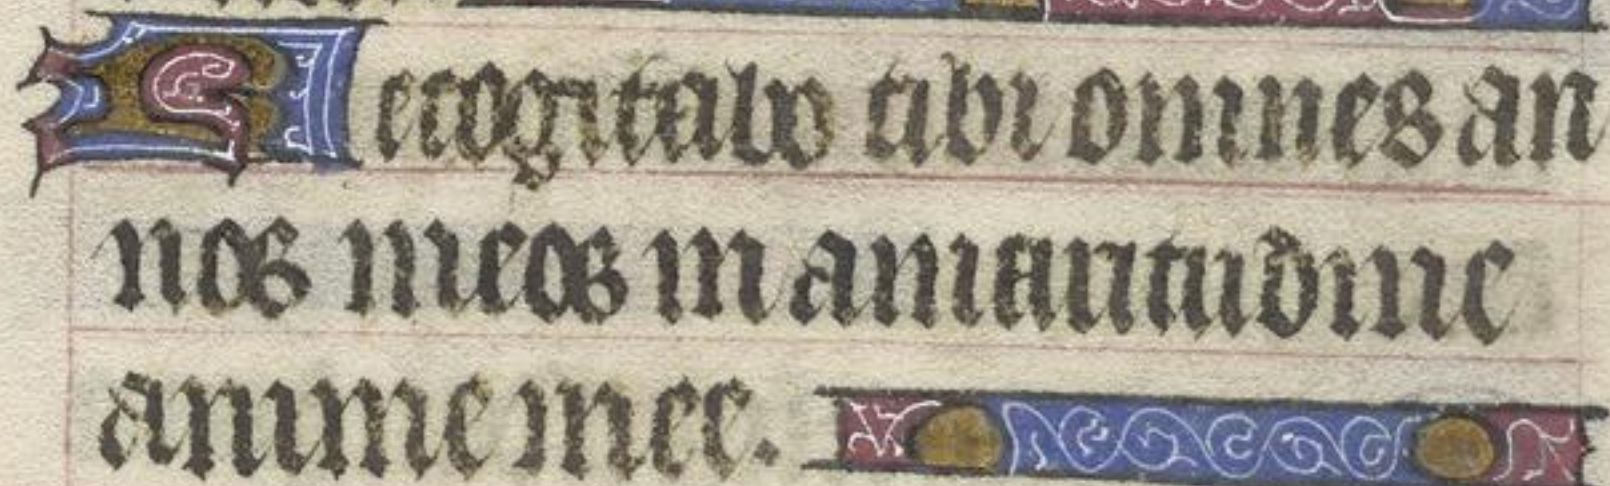 Recogitabo tibi omnes an
nos meos in amaritudine
anime mee.